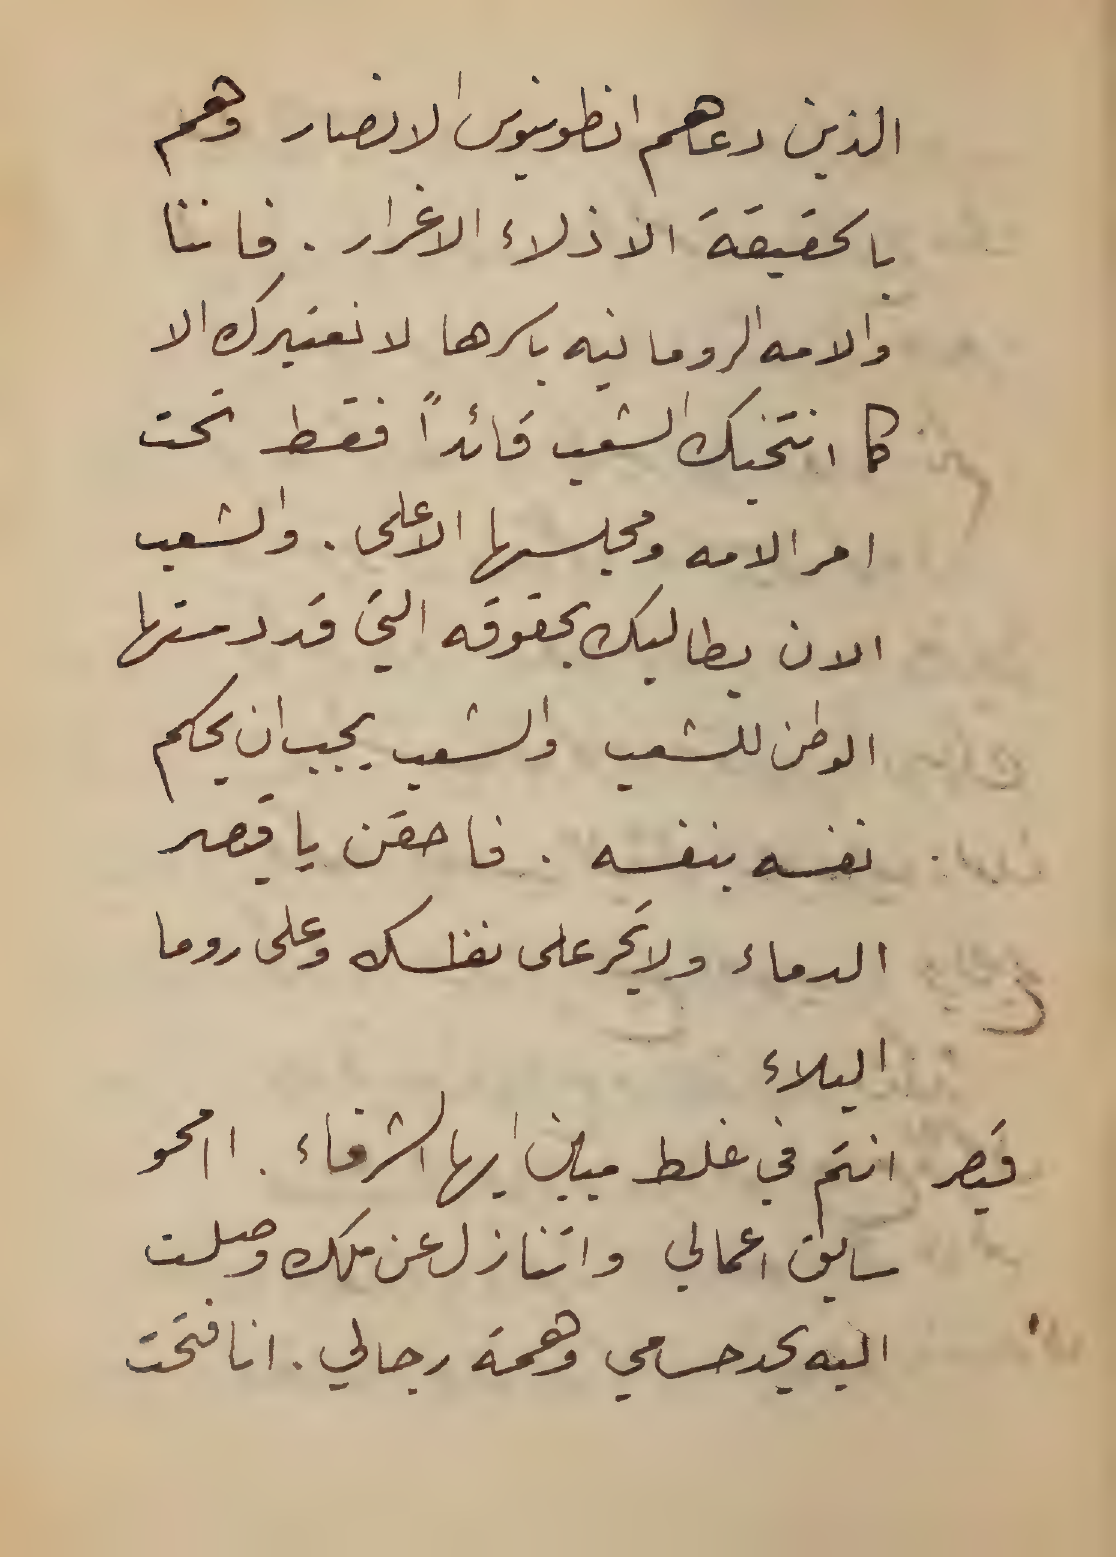 الذين دعاهم انطونيوس الانصار وهم
بالحقيقة الاذلاء الاغرار . فاننا
والامه الرومانيه باسرها لا نعتبرك الا
كما انتخبك الشعب قائداً فقط تحت
امر الامه ومجلسها الاعلى . والشعب
الان يطالبك بحقوقه التي قد دستها
الوطن للشعب والشعب يجب ان يحكم
نفسه بنفسه . فاحقن يا قيصر
الدماء ولا تجر على نفسك وعلى روما
البلاء
قيصر انتم في غلط مبين ايها الشرفاء . اامحو
سابق اعمالي واتنازل عن ملك وصلت
اليه بحد حسامي وهمة رجالي . انا فتحت